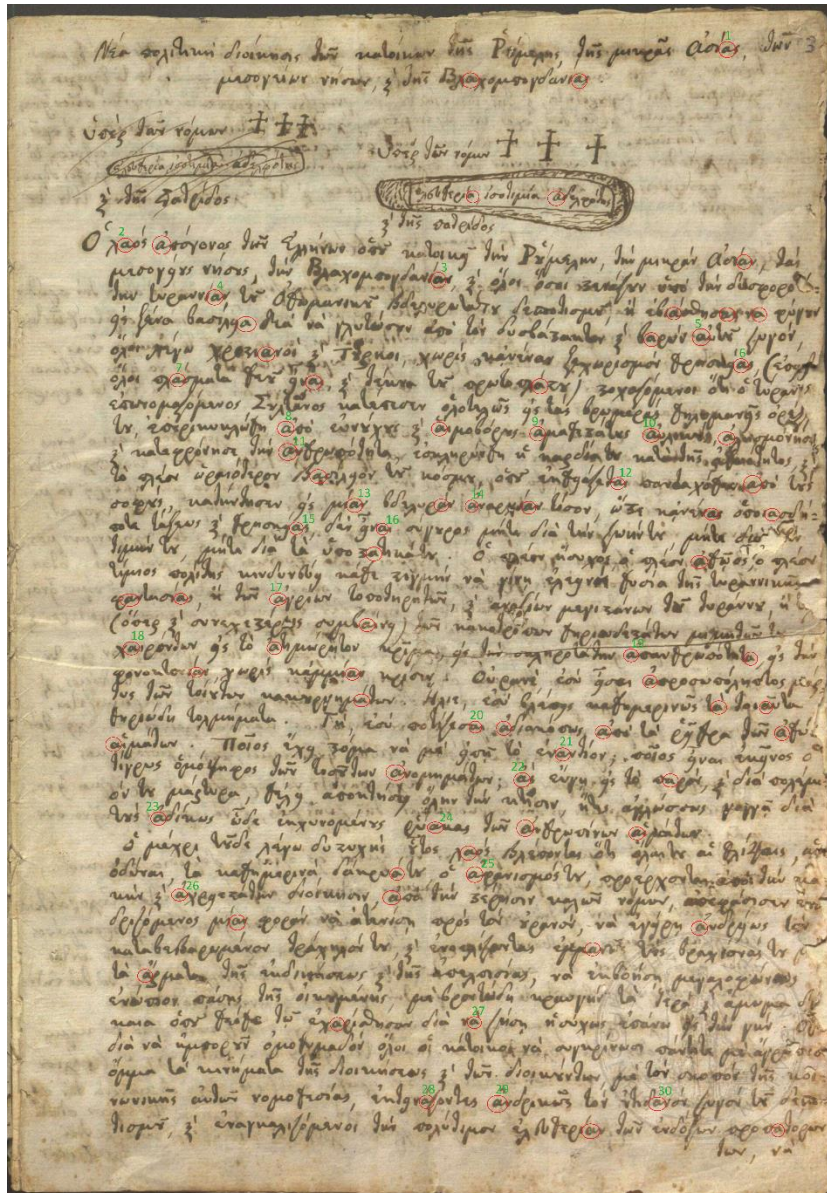 Νέα πολιτικὴ διοίκησις τῶν κατοίκων τῆς Ῥούμελης, τῆς μικρᾶς Ἀσίας, τῶν 3
μεσογείων νήσων, καὶ τῆς Βλαχομπογδανίας.
ὑπὲρ τῶν νόμων
ὑπὲρ τῶν νόμων
ἐλευθερία ἰσοτιμία ἀδελφότης
ἐλευθερία ἰσοτιμία ἀδελφότης
καὶ τῆς Πατρίδος
καὶ τῆς πατρίδος
Ὁ λαὸς ἀπόγονος τῶν Ἑλλήνων ὁποῦ κατοικεῖ τὴν Ῥούμελην, τὴν μικρὰν Ἀσίαν, τὰς
μεσογείους νήσους, τὴν Βλαχομπογδανίαν, καὶ ὅλοι ὅσοι στενάζουν ὑπὸ τὴν δυσφορο
τὴν τυραννίαν τοῦ Ὀθωμανικοῦ βδελυρωτάτου δεσποτισμοῦ, ἢ ἐβιάσθησαν νὰ φύγουν
εἰς ξένα βασίλεια διὰ νὰ γλυτώσουν ἀπὸ τὸν δυσβάστακτον καὶ βαρὺν αὐτοῦ ζυγόν,
ὅλοι λέγω χριστιανοὶ καὶ Τοῦρκοι, χωρὶς κανέναν ξεχωρισμὸν θρησκείας, (ἐπειδὴ
ὅλοι πλάσματα θεοῦ εἶναι, καὶ τέκνα τοῦ πρωτοπλάστου) στοχαζόμενοι ὅτι ὁ τύραννος
ἐπονομαζόμενος Σουλτάνος κατέπεσεν ὁλοτελῶς εἰς τὰς βρωμερὰς θηλυμανεῖς ὀρέξεις
του, ἐπερικυκλώθη ἀπὸ εὐνούχους καὶ αἱμοβόρους ἀμαθεστάτους αὐλικούς, ἀλησμόνησε
καὶ κατεφρόνησε τὴν ἀνθρωπότητα, ἐσκληρύνθη ἡ καρδία του κατὰ τῆς ἀθωότητος, καὶ
τὸ πλέον ὡραιότερον βασίλειον τοῦ κόσμου, ὁποῦ ἐκθειάζεται πανταχόθεν ἀπὸ τοὺς
σοφούς, κατήντησεν εἰς μίαν βδελυρὰν ἀναρχίαν τόσον, ὥστε κανένας ὁποιασδή-
ποτε τάξεως καὶ θρησκείας, δὲν εἶναι σίγουρος μήτε διὰ τὴν ζωήν του, μήτε διὰ τὴν
τιμήν του, μήτε διὰ τὰ ὑποστατικά του. Ὁ πλέον ἥσυχος, ὁ πλέον ἀθῶος, ὁ πλέον
τίμιος πολίτης κινδυνεύει κάθε στιγμὴν νὰ γίνῃ ἐλεεινὴ θυσία τῆς τυραννικῆς
φαντασίας, ἢ τῶν ἀγρίων τοποτηρητῶν, καὶ ἀναξίων μεγιστάνων τοῦ τυράννου, ἢ
(ὅπερ καὶ συνεχέστερον συμβαίνει) τῶν κακοτρόπων θηριωδεστάτων μιμητῶν του
χαιρόντων εἰς τὸ ἀτιμώρητον κρίμα, εἰς τὴν σκληροτάτην ἀπανθρωπότητα, εἰς τὴν
φονοκτονίαν χωρὶς καμμίαν κρίσιν. Οὐρανὲ ἐσὺ εἶσαι ἀπροσωπόληπτος μάρ-
τυς τῶν τοιούτων κακουργημάτων. Ἥλιε, ἐσὺ βλέπεις καθημερινῶς τὰ τοιαῦτα
θηριώδη τολμήματα. Γῆ, ἐσὺ ποτίζεσαι ἀδιακόπως ἀπὸ τὰ ῥεῖθρα τῶν ἀθώων
αἱμάτων. Ποῖος ἔχει στόμα νὰ μὲ εἰπῇ τὸ ἐναντίον; ποῖος εἶναι ἐκεῖνος ὁ
τίγρης ὁμόθηρος τῶν τοσούτων ἀνομημάτων; ἂς εὔγῃ εἰς τὸ παρόν, καὶ διὰ πολέμι-
όν του μάρτυρα, θέλει ἀποκτήσῃ ὅλην τὴν κτῆσιν, ἥτις ἀγλώσσως γογγᾷ διὰ
τοὺς ἀδίκως ὧδε ἐκχυνομένους ῥύακας τῶν ἀνθρωπίνων αἱμάτων.
Ὁ μέχρι τοῦδε λέγω δυστυχὴς οὗτος λαὸς βλέπωντας ὅτι ὅλαι του αἱ θλίψεις, αἱ
ὀδύναι, τὰ καθημερινὰ δάκρυά του, ὁ ἀφανισμός του, προέρχονται ἀπὸ τὴν κα-
κὴν καὶ ἀχρειεστάτην διοίκησιν, ἀπὸ τὴν στέρησιν καλῶν νόμων, ἀπεφάσισεν ἀν-
δριζόμενος μίαν φορὰν νὰ ἀτενίσῃ πρὸς τὸν οὐρανόν, νὰ ἐγείρῃ ἀνδρείως τὸν
καταβεβαρυμένον τράχηλόν του, καὶ ἐνοπλίζοντας ἐμμανῶς τοὺς βραχίονάς του μὲ
τὰ ἄρματα τῆς ἐκδικήσεως καὶ τῆς ἀπελπισίας, νὰ ἐκβοήσῃ μεγαλοφώνως
ἐνώπιον πάσης τῆς οἰκουμένης μὲ βροντώδη κραυγὴν τὰ ἱερὰ καὶ ἄμωμα δί-
καια ὁποῦ θεόθεν τῷ ἐχαρίσθησαν διὰ νὰ ζήσῃ ἡσύχως ἐπάνω εἰς τὴν γῆν.
διὰ νὰ ἠμποροῦν ὁμοθυμαδὸν ὅλοι οἱ κάτοικοι νὰ συγκρίνωσι πάντοτε μὲ ἄγρυπνον
ὄμμα τὰ κινήματα τῆς διοικήσεως καὶ τῶν διοικούντων, μὲ τὸν σκοπὸν τῆς κοι-
νωνικῆς αὐτῶν νομοθεσίας, ἐκτινάζοντες ἀνδρικῶς τὸν οὐτιδανὸν ζυγὸν τοῦ δεσπο-
τισμοῦ, καὶ ἐναγκαλιζόμενοι τὴν πολύτιμον ἐλευθερίαν τῶν ἐνδόξων προπατόρων
των, νὰ